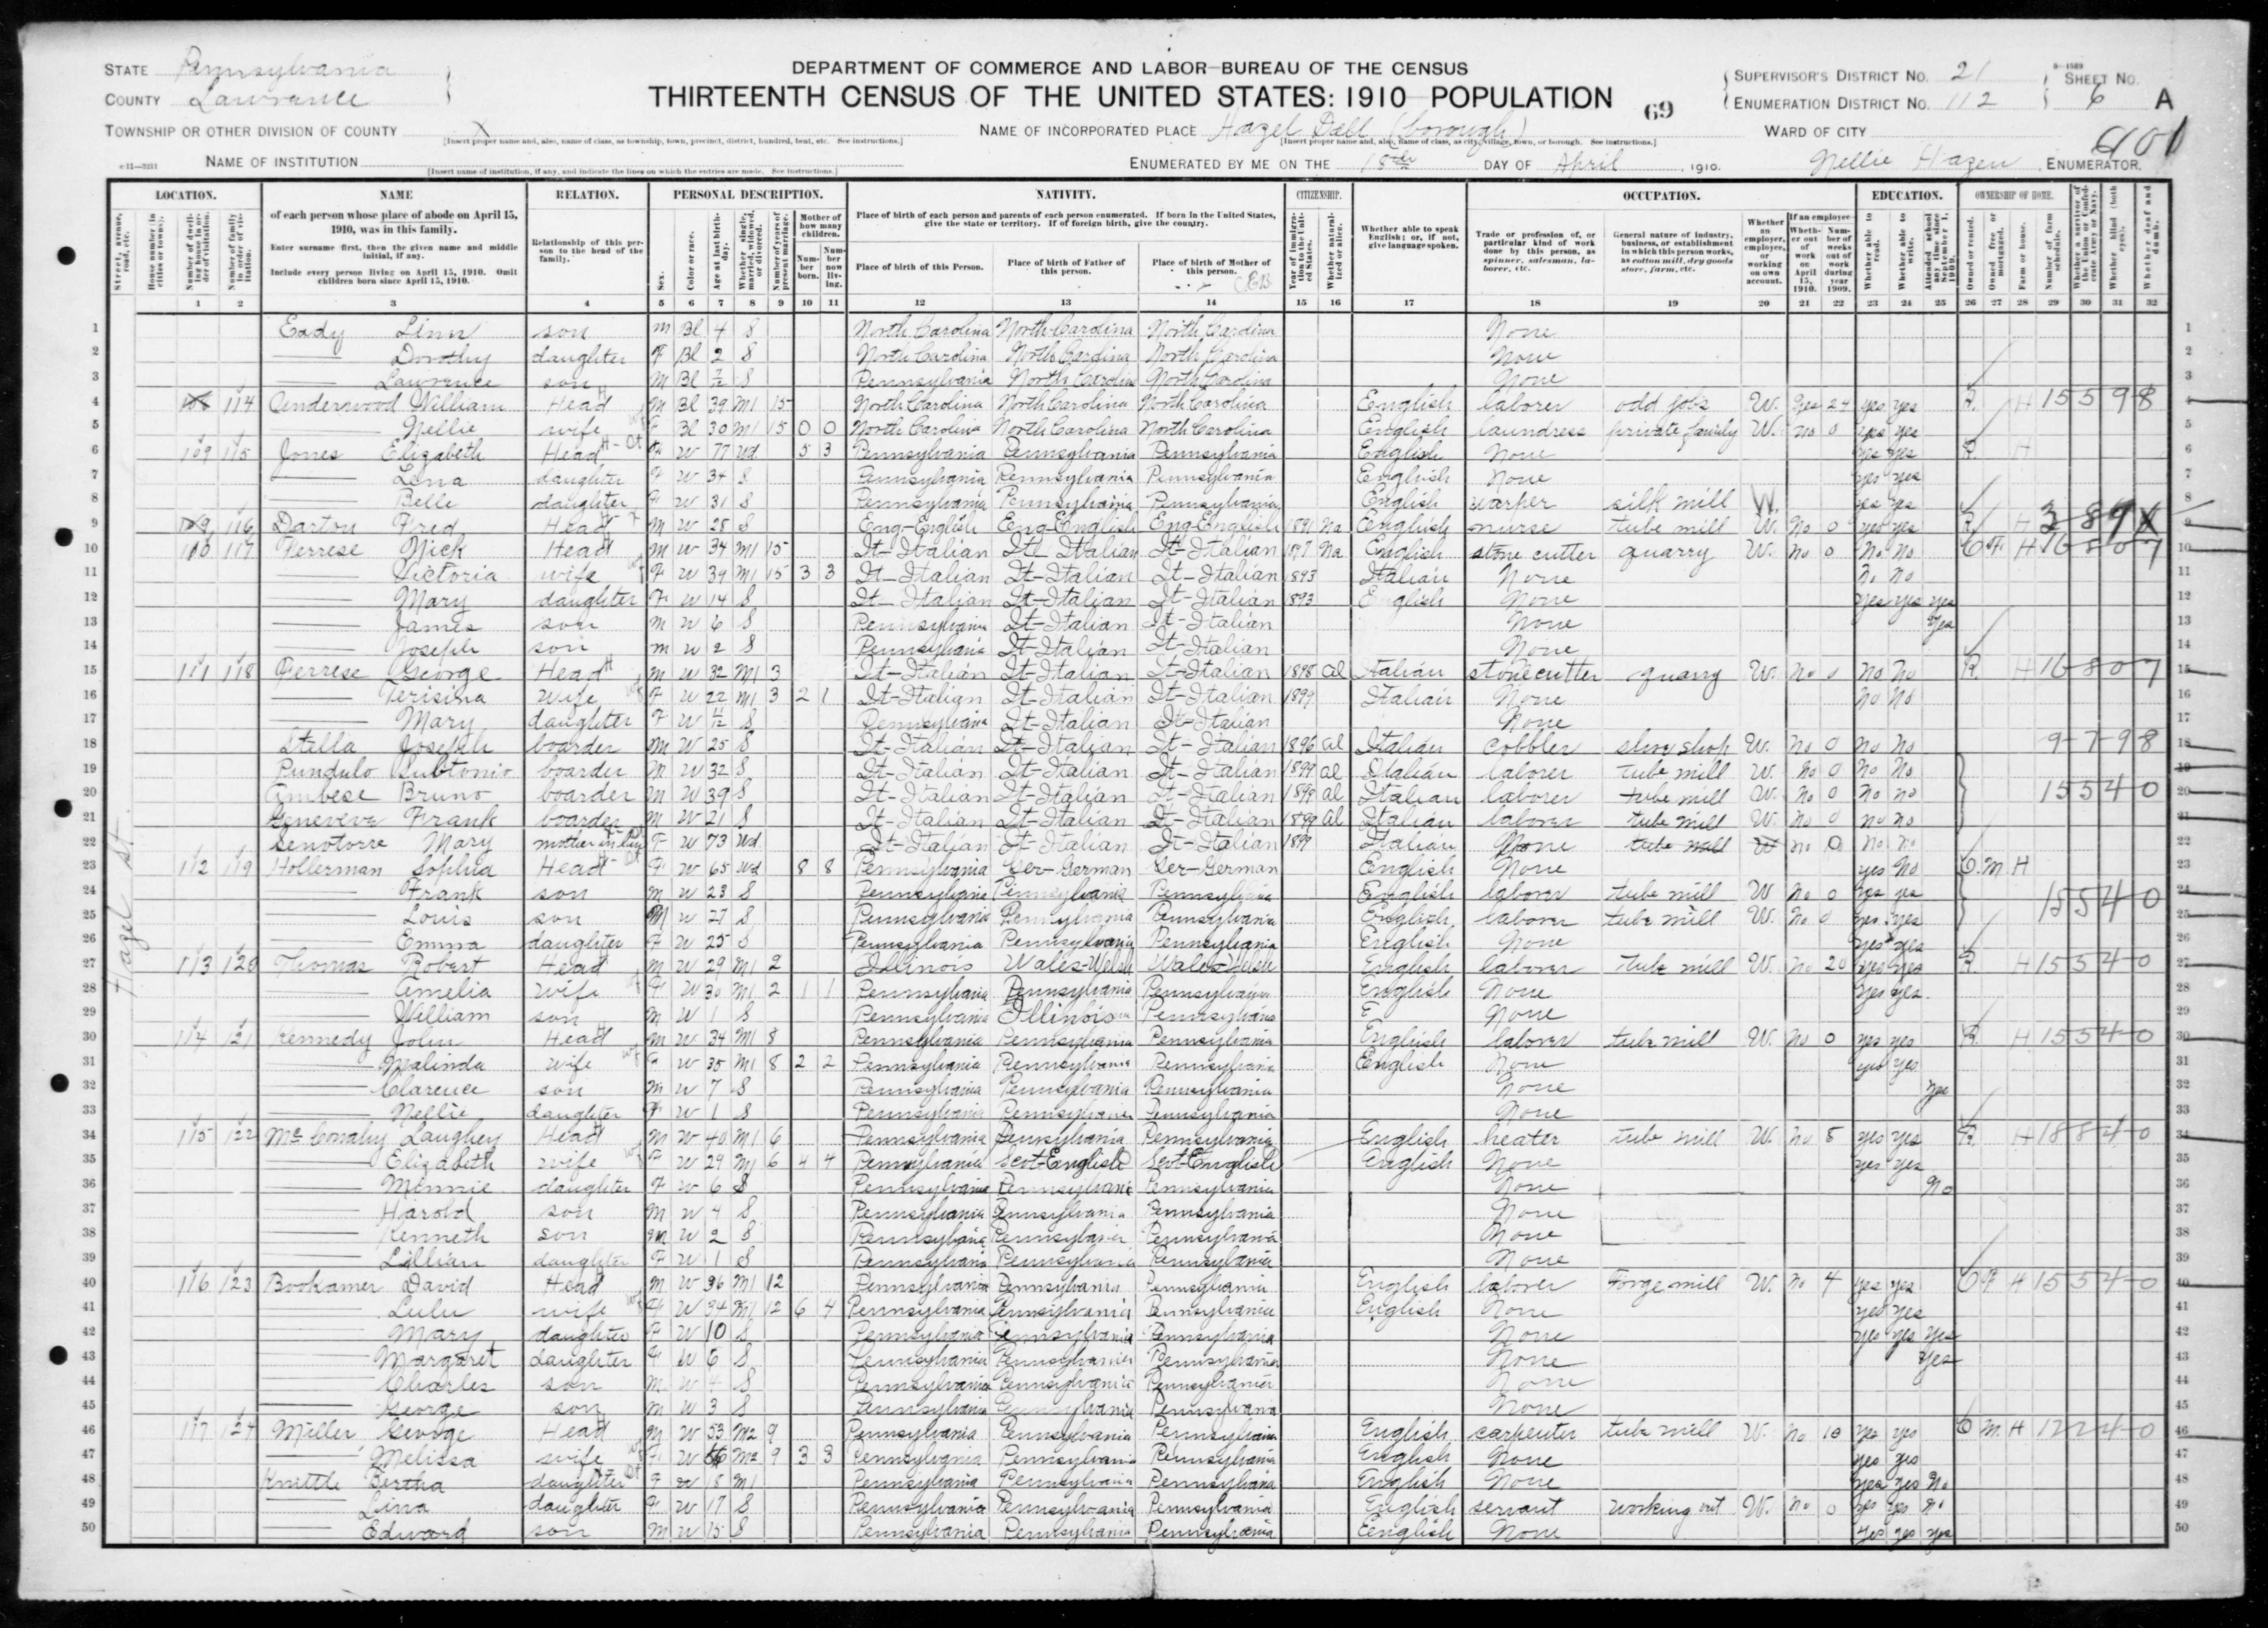 STATE Pennsylvania
COUNTY Lawrence
TOWNSHIP OR OTHER DIVISION OF COUNTY X
[Insert proper name and, also, name of class, as township, town, precinct, district, hundred, beat, etc. See instructions.]
NAME OF INSTITUTION
[Insert name of institution, if any, and indicate the lines on which the entries are made. See instructions.]
DEPARTMENT OF COMMERCE AND LABOR—BUREAU OF THE CENSUS
THIRTEENTH CENSUS OF THE UNITED STATES: 1910 POPULATION
69
NAME OF INCORPORATED PLACE Hazel Dell (borough)
[Insert proper name and, also, name of class, as city, village, town, or borough. See instructions.]
ENUMERATED BY ME ON THE 18th DAY OF April, 1910.
Nellie Hazen, ENUMERATOR.
SUPERVISOR'S DISTRICT No. 21
ENUMERATION DISTRICT No. 112
SHEET No. 6 A
WARD OF CITY
LOCATION. NAME RELATION. PERSONAL DESCRIPTION. NATIVITY. CITIZENSHIP. OCCUPATION. EDUCATION. OWNERSHIP OF HOME.
of each person whose place of abode on April 15, 1910, was in this family.
Enter surname first, then the given name and middle initial, if any.
Include every person living on April 15, 1910. Omit children born since April 15, 1910.
Relationship of this person to the head of the family.
Place of birth of each person and parents of each person enumerated. If born in the United States, give the state or territory. If of foreign birth, give the country.
Place of birth of this Person. Place of birth of Father of this person. Place of birth of Mother of this person.
Whether able to speak English; or, if not, give language spoken.
Trade or profession of, or particular kind of work done by this person, as spinner, salesman, laborer, etc.
General nature of industry, business, or establishment in which this person works, as cotton mill, dry goods store, farm, etc.
1 2 3 4 5 6 7 8 9 10 11 12 13 14 15 16 17 18 19 20 21 22 23 24 25 26 27 28 29 30 31 32
Hazel St
1 Eady Linn son M Bl 4 S North Carolina North Carolina North Carolina None
2 Dorothy daughter F Bl 2 S North Carolina North Carolina North Carolina None
3 Lawrence son M Bl S Pennsylvania North Carolina North Carolina None
4 108 114 Underwood William Head M Bl 39 M1 15 North Carolina North Carolina North Carolina English laborer odd jobs W. yes 24 yes yes R. H 15598
5 Nellie wife F Bl 30 M1 15 0 0 North Carolina North Carolina North Carolina English laundress private family W. no 0 yes yes
6 109 115 Jones Elizabeth Head F W 77 Wd 5 3 Pennsylvania Pennsylvania Pennsylvania English None yes yes R. H
7 Lena daughter F W 34 S Pennsylvania Pennsylvania Pennsylvania English None yes yes
8 Belle daughter F W 31 S Pennsylvania Pennsylvania Pennsylvania English warper silk mill W. yes yes
9 109 116 Darton Fred Head M W 28 S Eng-English Eng-English Eng-English 1891 Na English nurse tube mill W. No 0 yes yes R. H
10 110 117 Ferrese Nick Head M W 34 M1 15 It-Italian It Italian It-Italian 1897 Na English stone cutter quarry W. No 0 No No O F H 16807
11 Victoria wife F W 39 M1 15 3 3 It-Italian It-Italian It-Italian 1893 Italian None No No
12 Mary daughter F W 14 S It-Italian It-Italian It-Italian 1893 English None yes yes yes
13 James son M W 6 S Pennsylvania It-Italian It-Italian None yes
14 Joseph son M W 2 S Pennsylvania It-Italian It-Italian None
15 111 118 Ferrese George Head M W 32 M1 3 It-Italian It-Italian It-Italian 1898 al Italian stone cutter quarry W. No 0 No No R. H 16807
16 Terisina wife F W 22 M1 3 2 1 It-Italian It-Italian It-Italian 1899 Italian None No No
17 Mary daughter F W S Pennsylvania It-Italian It-Italian None
18 Stella Joseph boarder M W 25 S It-Italian It-Italian It-Italian 1896 al Italian cobbler shoe shop W. No 0 No No 9-7-98
19 Pundulo Subtonio boarder M W 32 S It-Italian It-Italian It-Italian 1899 al Italian laborer tube mill W. No 0 No No
20 Ambese Bruno boarder M W 39 S It-Italian It-Italian It-Italian 1899 al Italian laborer tube mill W. No 0 No No 15540
21 Geneveve Frank boarder M W 21 S It-Italian It-Italian It-Italian 1899 al Italian laborer tube mill W. No 0 No No
22 Senotorre Mary mother in law F W 73 Wd It-Italian It-Italian It-Italian 1899 Italian None tube mill W no 0 No No
23 112 119 Hollerman Sophia Head F W 65 Wd 8 8 Pennsylvania Ger-German Ger-German English None yes No O. M H
24 Frank son M W 23 S Pennsylvania Pennsylvania Pennsylvania English laborer tube mill W No 0 yes yes 15540
25 Louis son M W 27 S Pennsylvania Pennsylvania Pennsylvania English laborer tube mill W. No 0 yes yes
26 Emma daughter F W 25 S Pennsylvania Pennsylvania Pennsylvania English None yes yes
27 113 120 Thomas Robert Head M W 29 M1 2 Illinois Wales-Welsh Wales-Welsh English laborer tube mill W. no 20 yes yes R. H 15540
28 Amelia wife F W 30 M1 2 1 1 Pennsylvania Pennsylvania Pennsylvania English None yes yes
29 William son M W 1 S Pennsylvania Illinois Pennsylvania E None
30 114 121 Kennedy John Head M W 34 M1 8 Pennsylvania Pennsylvania Pennsylvania English laborer tube mill W. No 0 yes yes R. H 15540
31 Malinda wife F W 30 M1 8 2 2 Pennsylvania Pennsylvania Pennsylvania English None yes yes
32 Clarence son M W 7 S Pennsylvania Pennsylvania Pennsylvania None yes
33 Nellie daughter F W 1 S Pennsylvania Pennsylvania Pennsylvania None
34 115 122 McConahy Laughey Head M W 40 M1 6 Pennsylvania Pennsylvania Pennsylvania English heater tube mill W. No 8 yes yes R. H 18840
35 Elizabeth wife F W 29 M1 6 4 4 Pennsylvania Scot-English Scot-English English None yes yes
36 Minnie daughter F W 6 S Pennsylvania Pennsylvania Pennsylvania None No
37 Harold son M W 4 S Pennsylvania Pennsylvania Pennsylvania None
38 Kenneth son M W 2 S Pennsylvania Pennsylvania Pennsylvania None
39 Lillian daughter F W 1 S Pennsylvania Pennsylvania Pennsylvania None
40 116 123 Bookamer David Head M W 36 M1 12 Pennsylvania Pennsylvania Pennsylvania English laborer Forge mill W. No 4 yes yes O F H 15540
41 Lulu wife F W 34 M1 12 6 4 Pennsylvania Pennsylvania Pennsylvania English None yes yes
42 Mary daughter F W 10 S Pennsylvania Pennsylvania Pennsylvania None yes yes yes
43 Margaret daughter F W 6 S Pennsylvania Pennsylvania Pennsylvania None yes
44 Charles son M W 4 S Pennsylvania Pennsylvania Pennsylvania None
45 George son M W 3 S Pennsylvania Pennsylvania Pennsylvania None
46 117 124 Miller George Head M W 53 M2 9 Pennsylvania Pennsylvania Pennsylvania English carpenter tube mill W. No 10 yes yes O M H 12240
47 Melissa wife F W M2 9 3 3 Pennsylvania Pennsylvania Pennsylvania English None yes yes
48 Knettle Bertha daughter F W 18 M1 Pennsylvania Pennsylvania Pennsylvania English None yes yes No
49 Lina daughter F W 17 S Pennsylvania Pennsylvania Pennsylvania English servant working out W. no 0 yes yes No
50 Edward son M W 15 S Pennsylvania Pennsylvania Pennsylvania English None yes yes yes